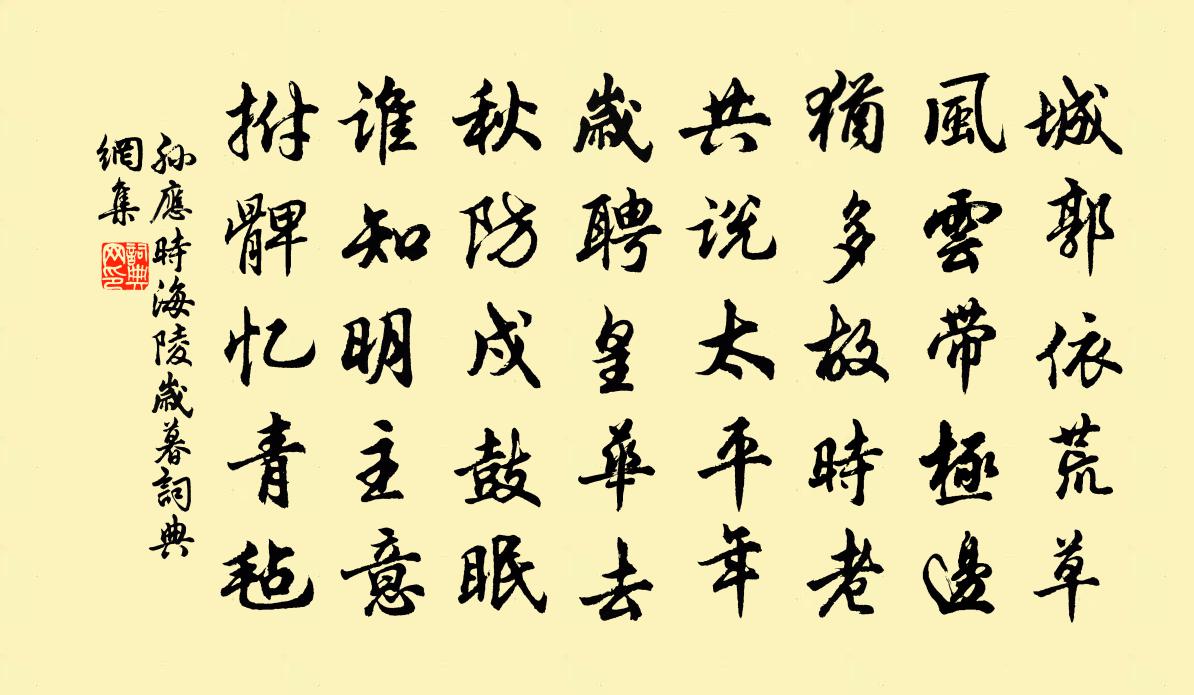 城郭依荒草
風雲帶極邊
猶多故時老
共説太平年
歲聘皇華去
秋防戍鼓眠
谁知明主意
拊髀忆青毡
孫應時海陵歲暮詞典
網集
詞典
网印